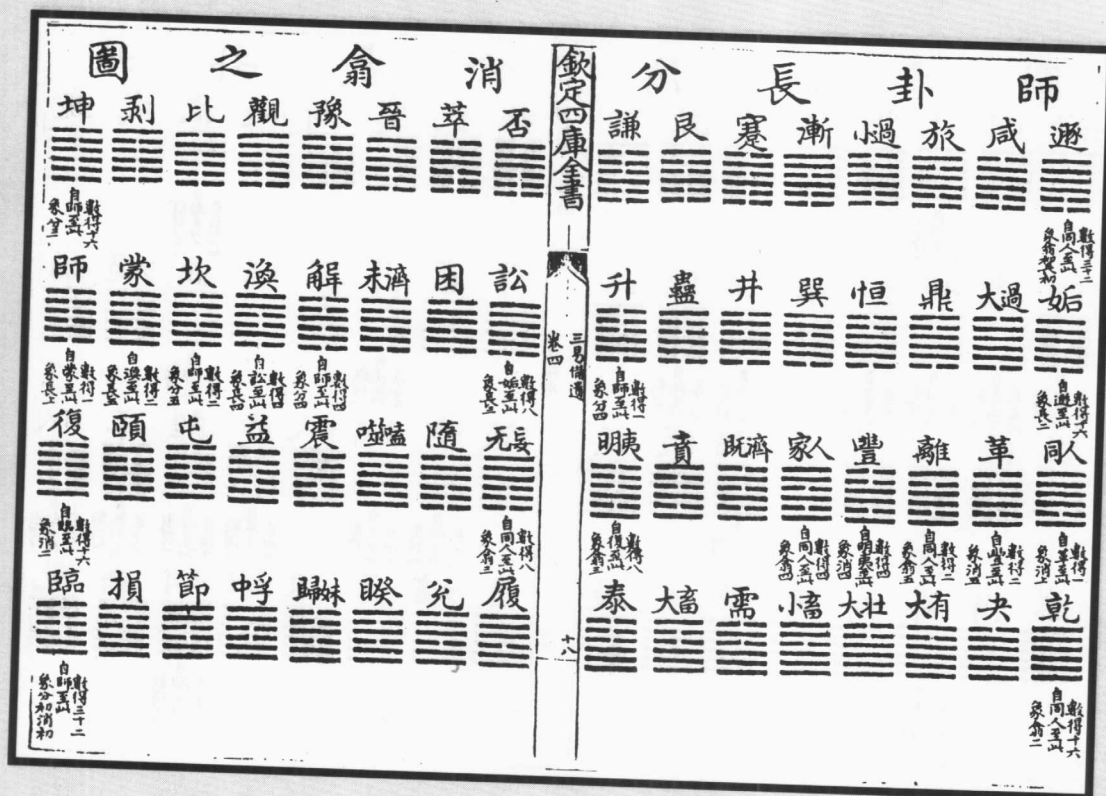 師卦長分
遯 咸 旅 小過 漸 蹇 艮 謙
數得三十二
自同人至此
象翕初長初
姤 大過 鼎 恒 巽 井 蠱 升
數得十六
自遯至此
象長二
數得一
自師至此
象分四
同人 革 離 豐 家人 既濟 賁 明夷
數得一
自革至此
象消上
數得二
自豐至此
象消五
數得二
自同人至此
象翕五
數得四
自明夷至此
象消四
數得四
自同人至此
象翕四
數得八
自復至此
象翕三
乾 夬 大有 大壯 小畜 需 大畜 泰
數得十六
自同人至此
象翕二
欽定四庫全書
三易備遺
卷四
十八
消翕之圖
否 萃 晉 豫 觀 比 剥 坤
數得十六
自師至此
象分二
訟 困 未濟 解 渙 坎 蒙 師
數得八
自姤至此
象長三
數得四
自師至此
象分四
數得四
自訟至此
象長四
數得二
自師至此
象分五
數得二
自渙至此
象長五
數得一
自蒙至此
象長上
无妄 隨 噬嗑 震 益 屯 頤 復
數得八
自同人至此
象翕三
數得十六
自臨至此
象消二
履 兌 睽 歸妹 中孚 節 損 臨
數得三十二
自師至此
象分初消初